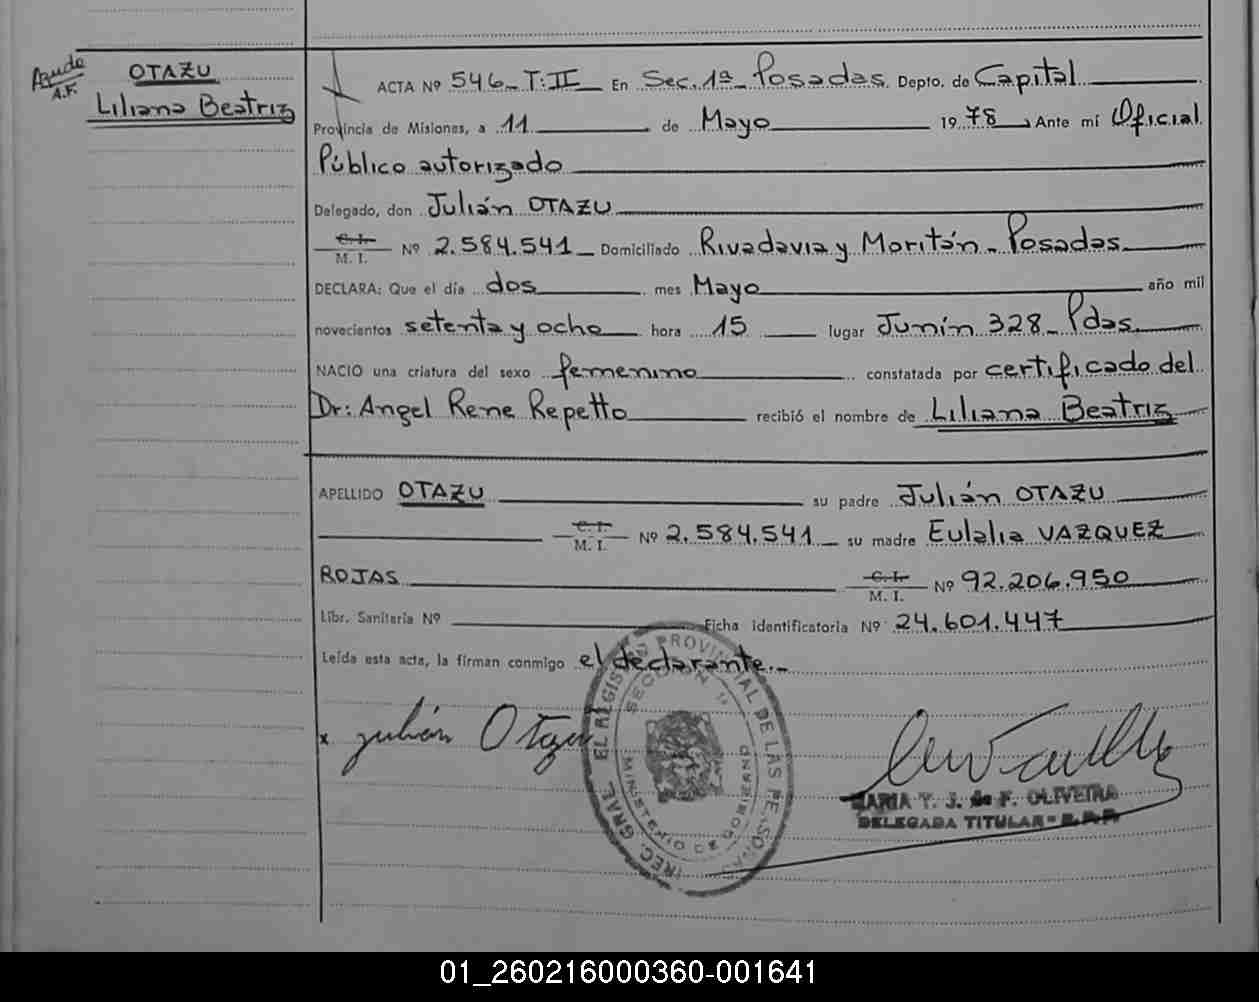 Ayude
A.F.
OTAZU
Liliana Beatriz
ACTA Nº 546_T:II En Sec. 1ª_ Posadas. Depto. de Capital
Provincia de Misiones, a 11 de Mayo 1978 Ante mí Oficial
Público autorizado
Delegado, don Julián OTAZU
C.I.
M. I. Nº 2.584.541_ Domiciliado Rivadavia y Moritán_ Posadas
DECLARA: Que el día dos mes Mayo año mil
novecientos setenta y ocho hora 15 lugar Junín 328_ Pdas.
NACIO una criatura del sexo femenino constatada por certificado del
Dr: Angel Rene Repetto recibió el nombre de Liliana Beatriz
APELLIDO OTAZU su padre Julián OTAZU
C.I.
M. I. Nº 2.584.541_ su madre Eulalia VAZQUEZ
ROJAS C.I.
M. I. Nº 92.206.950
Libr. Sanitaria Nº Ficha identificatoria Nº 24.601.447
Leída esta acta, la firman conmigo el declarante._
x Julián Otazu
REC. GRAL. EL REGISTRO PROVINCIAL DE LAS PERSONAS
SECCION 1ª
MINISTERIO DE GOBIERNO
MARIA T. J. de F. OLIVEIRA
DELEGADA TITULAR - R.P.P.
01_260216000360-001641